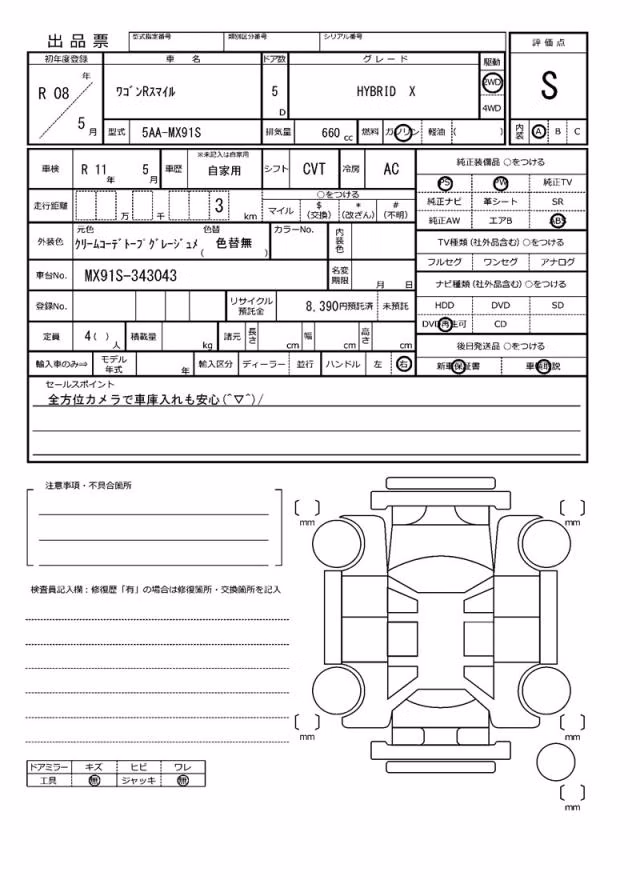 出品票
型式指定番号 類別区分番号 シリアル番号
評価点
S
内装 A B C
初年度登録 車名 ドア数 グレード 駆動
R 08 年 5 月
ワゴンRスマイル 5 D HYBRID X 2WD 4WD
型式 5AA-MX91S 排気量 660 cc 燃料 ガソリン 軽油 ( )
車検 R 11 年 5 月 車歴 ※未記入は自家用 自家用 シフト CVT 冷房 AC
走行距離 万 千 3 km
○をつける
マイル $(交換) *(改ざん) #(不明)
外装色 元色 色替 カラーNo. 内装色
クリームコーデトープグレージュメ ( 色替無 )
車台No. MX91S-343043 名変期限 月 日
登録No. リサイクル預託金 8,390円預託済 未預託
定員 4 ( ) 人 積載量 kg 諸元 長さ cm 幅 cm 高さ cm
輸入車のみ⇒ モデル年式 年 輸入区分 ディーラー 並行 ハンドル 左 右
純正装備品 ○をつける
PS PW 純正TV
純正ナビ 革シート SR
純正AW エアB ABS
TV種類(社外品含む) ○をつける
フルセグ ワンセグ アナログ
ナビ種類(社外品含む) ○をつける
HDD DVD SD
DVD再生可 CD
後日発送品 ○をつける
新車保証書 車輌取説
セールスポイント
全方位カメラで車庫入れも安心(^▽^)/
注意事項・不具合箇所
検査員記入欄：修復歴「有」の場合は修復箇所・交換箇所を記入
ドアミラー キズ ヒビ ワレ
工具 無 ジャッキ 無
[ ] mm
[ ] mm
[ ] mm
[ ] mm
[ ] mm